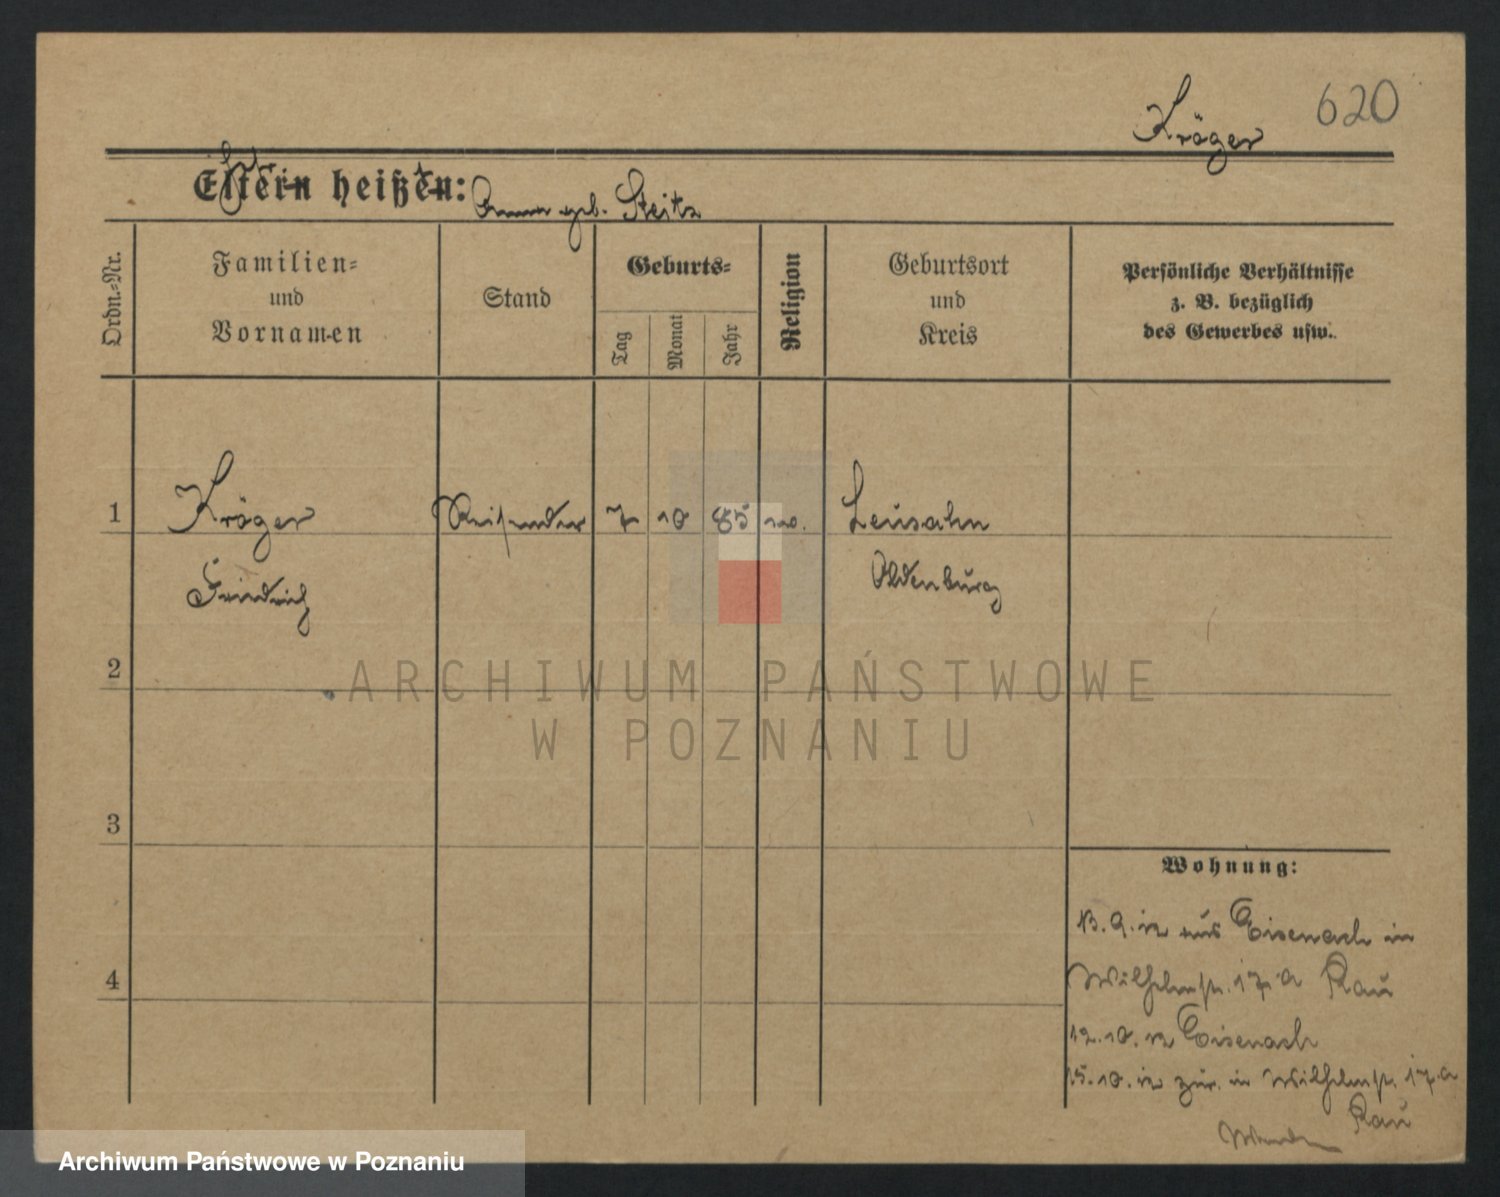 620
Kröger
Eltern heißen: Anna geb. Steitz
Ordn.-Nr.
Familien-
und
Vornamen
Stand
Geburts-
Tag
Monat
Jahr
Religion
Geburtsort
und
Kreis
Persönliche Verhältnisse
z. B. bezüglich
des Gewerbes usw.
1
Kröger Reisender 7 10 85 Lensahn
Friedrich Oldenburg
2
3
4
Wohnung:
13.9.12 aus Eisenach in
Wilhelmstr. 17a Rau
12.10.12 Eisenach
15.10.12 zur. in Wilhelmstr. 17a
Rau
ARCHIWUM PAŃSTWOWE
W POZNANIU
Archiwum Państwowe w Poznaniu